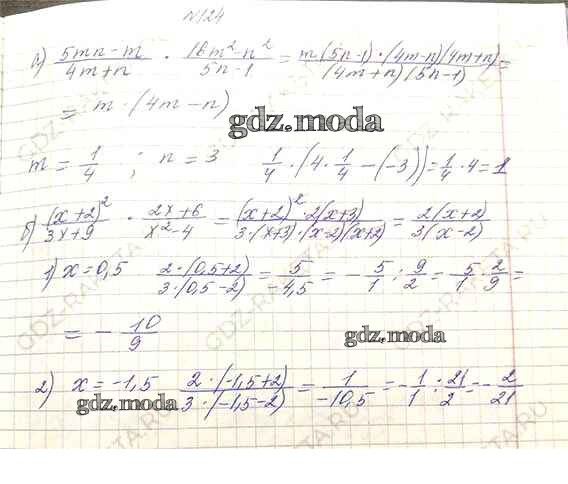 N124
а) (5mn-m)/(4m+n) · (16m²-n²)/(5n-1) = (m(5n-1)·(4m-n)(4m+n))/((4m+n)(5n-1)) =
= m·(4m-n)
gdz.moda
m = 1/4 ; n = 3 1/4·(4·1/4-(-3)) = 1/4·4 = 1
б) (x+2)²/(3x+9) · (2x+6)/(x²-4) = ((x+2)²·2(x+3))/(3·(x+3)·(x-2)(x+2)) = 2(x+2)/(3(x-2))
1) x=0,5 (2·(0,5+2))/(3·(0,5-2)) = 5/(-4,5) = -5/1 : 9/2 = -5/1·2/9 =
= -10/9
gdz.moda
2) x=-1,5 (2·(-1,5+2))/(3·(-1,5-2)) = 1/(-10,5) = -1/1 : 21/2 = -2/21
gdz.moda